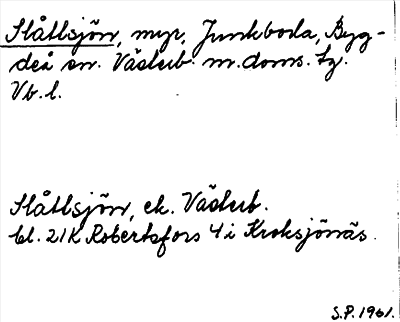 Slåttsjön, myr, Junkboda, Byg-
deå sn. Västerb. m. doms. tg.
Vb. l.
Slåttsjön, ek. Västerb.
bl. 21K Robertsfors 4 i Kroksjönäs.
S.P. 1961.